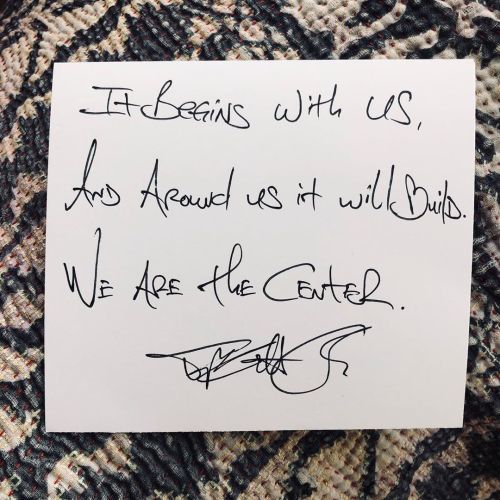 It Begins with us,
And Around us it will Build.
We Are the Center.